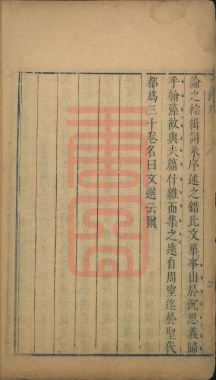 論之綜緝詞采序述之錯比文華事出於沉思義歸
乎翰藻故與夫篇什雜而集之遠自周室迄於聖代
都為三十卷名曰文選云爾